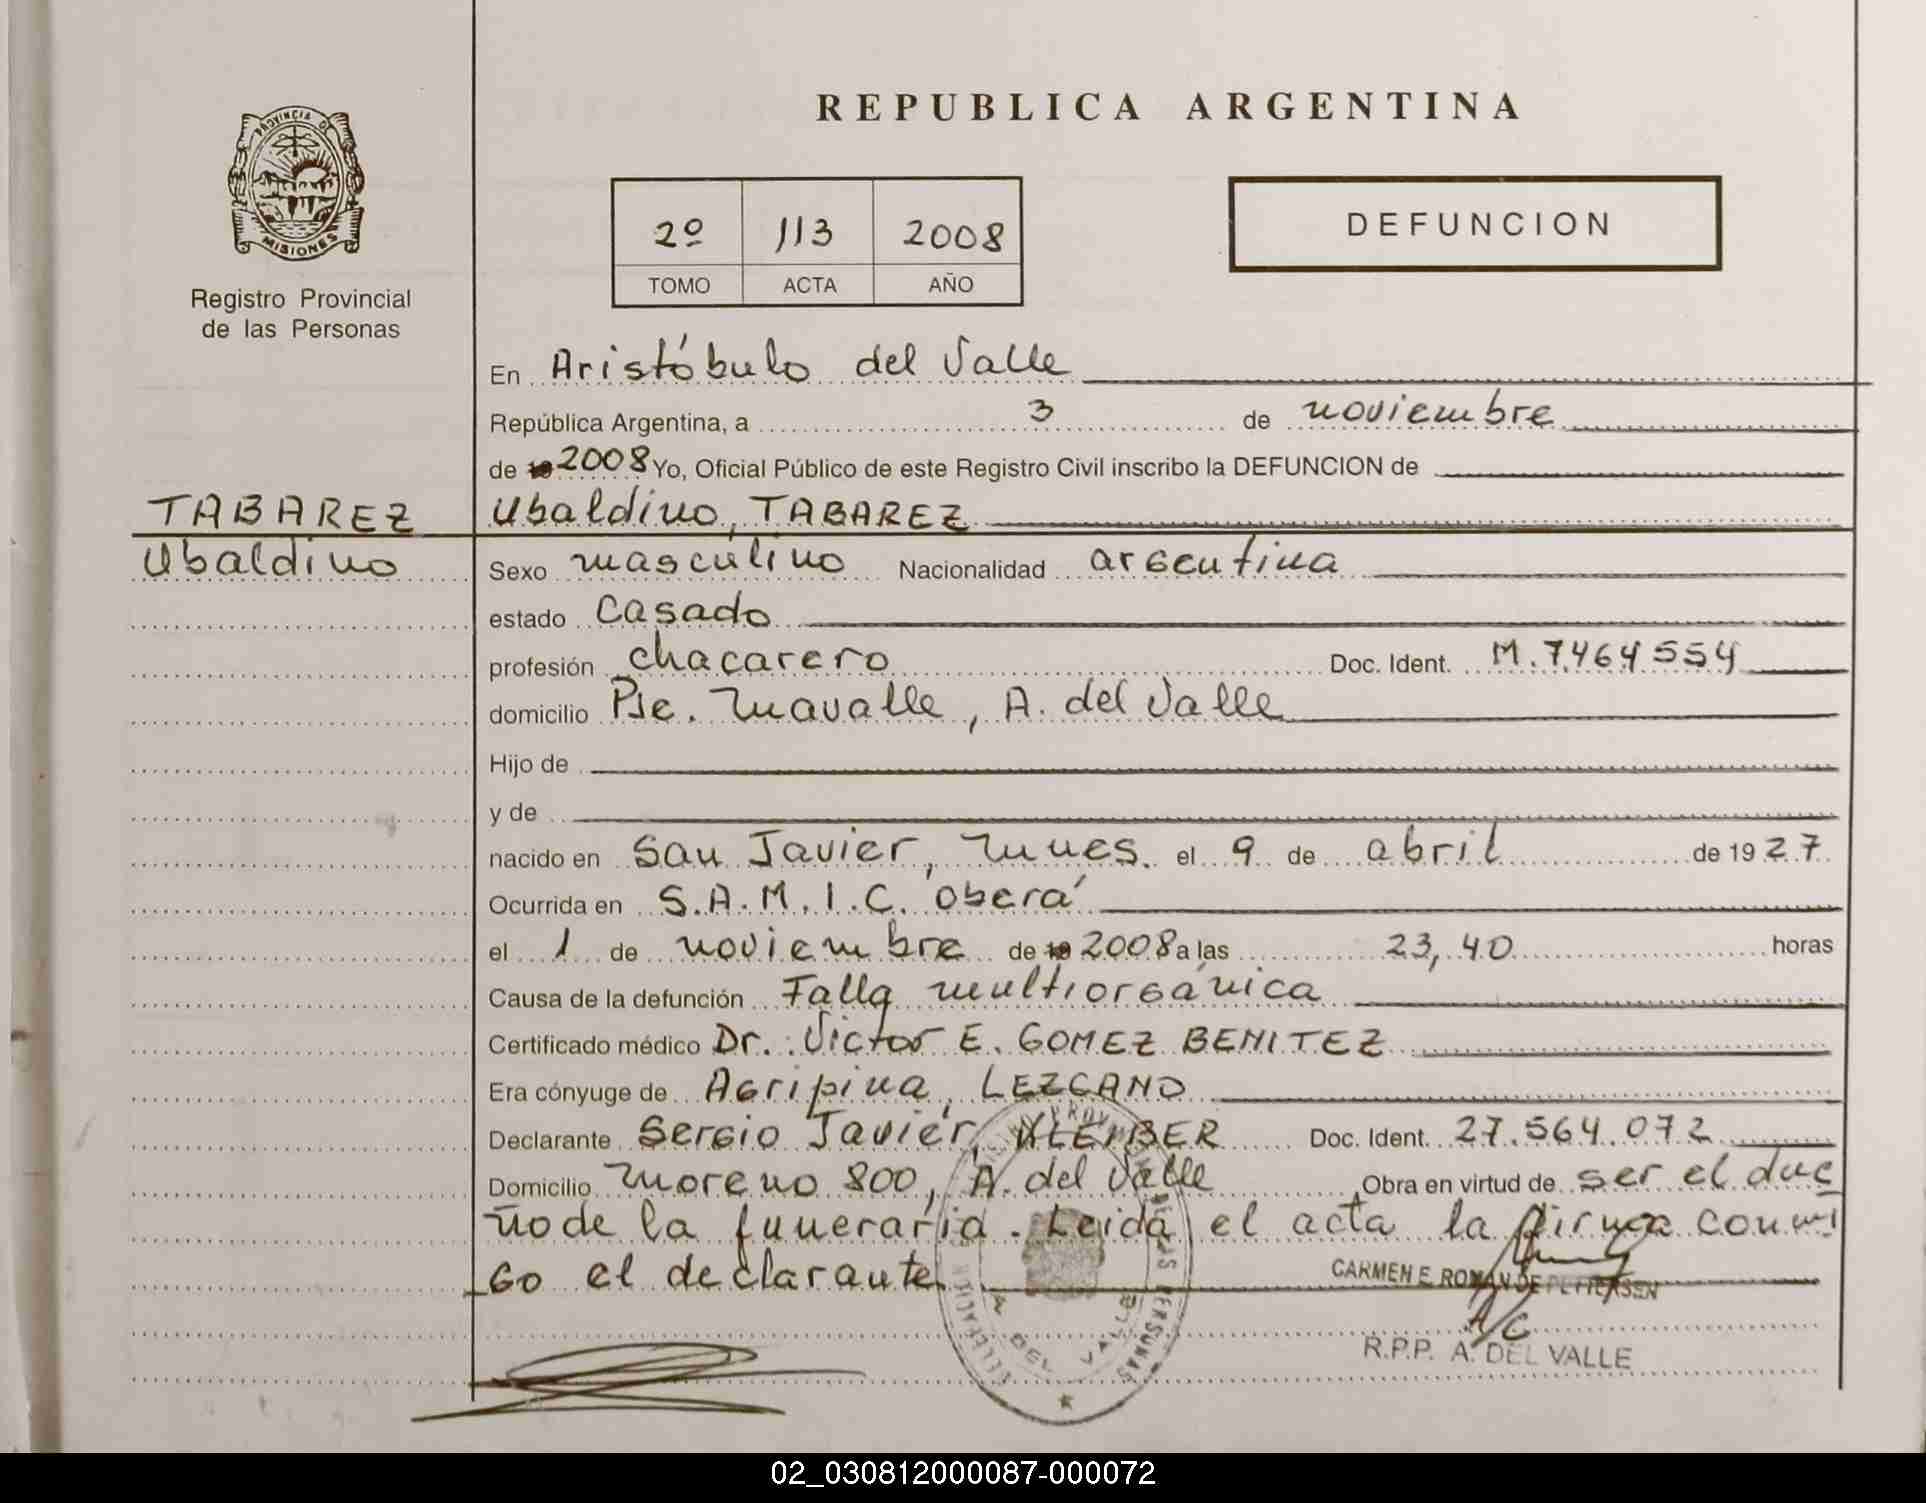 REPUBLICA ARGENTINA
PROVINCIA DE
MISIONES
Registro Provincial
de las Personas
2º 113 2008
TOMO ACTA AÑO
DEFUNCION
En Aristóbulo del Valle
República Argentina, a 3 de noviembre
de 19 2008 Yo, Oficial Público de este Registro Civil inscribo la DEFUNCION de
TABAREZ
Ubaldino
Ubaldino, TABAREZ
Sexo masculino Nacionalidad argentina
estado Casado
profesión chacarero Doc. Ident. M.7464554
domicilio Pje. Mavalle, A. del Valle
Hijo de
y de
nacido en San Javier, Mnes. el 9 de abril de 1927
Ocurrida en S.A.M.I.C. Oberá
el 1 de noviembre de 19 2008 a las 23,40 horas
Causa de la defunción Falla multiorgánica
Certificado médico Dr. Victor E. GOMEZ BENITEZ
Era cónyuge de Agripina, LEZCANO
Declarante Sergio Javier, KLEIBER Doc. Ident. 27.564.072
Domicilio Moreno 800, A. del Valle Obra en virtud de ser el due
ño de la funeraria. Leida el acta la firma conmi
go el declarante
CARMEN E. ROMAN DE PETTERSEN
A/C
R.P.P. A. DEL VALLE
A. DEL VALLE
02_030812000087-000072